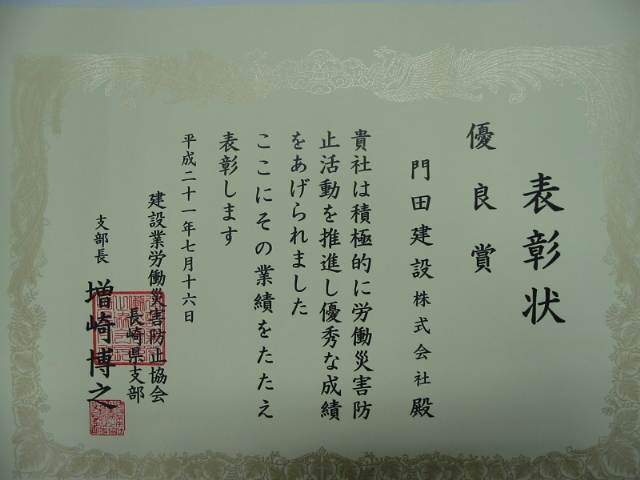 表彰状
優良賞
門田建設株式会社殿
貴社は積極的に労働災害防
止活動を推進し優秀な成績
をあげられました
ここにその業績をたたえ
表彰します
平成二十一年七月十六日
建設業労働災害防止協会
長崎県支部
支部長 増崎博之